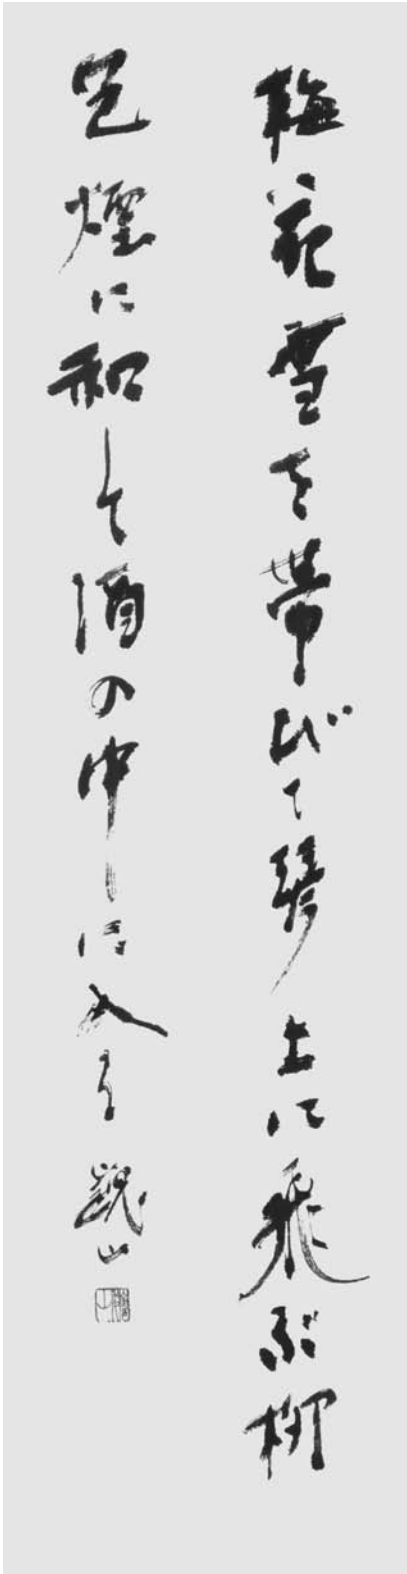 梅花雪を帯びて琴上に飛ぶ柳
色煙に和して酒の中に入る 観山